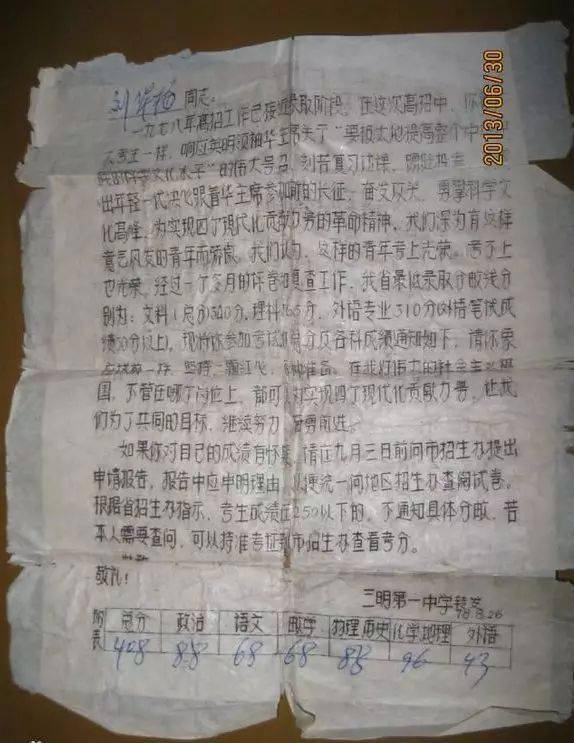 2013/06/30
刘 同志:
一九七八年高招工作已接近录取阶段。在这次高招中,你
考生一样,响应英明领袖华主席关于“要极大地提高整个中
科学文化水平”的伟大号召,刻苦复习功课,踊跃报考,
出年轻一代决心跟着华主席参加新的长征,奋发攻关,勇攀科学文
化高峰,为实现四个现代化贡献力量的革命精神。我们深为有这样
意气风发的青年而骄傲。我们认为,这样的青年考上光荣。考不上
也光荣。经过一个多月的评卷和复查工作,我省最低录取分数线分
别为:文科(总分)340分,理科 分,外语专业310分(外语笔试成
绩50分以上)。现将你参加考试的总分及各科成绩通知如下,请你象
一样,一颗红心, 准备。在我们伟大的社会主义祖
国,不管在哪个岗位上,都可 对实现四个现代化贡献力量,让我
们为了共同的目标,继续努力,奋勇前进。
如果你对自己的成绩有怀疑,请在九月三日前向市招生办提出
申请报告,报告中应申明理由,以便统一向地区招生办查阅试卷。
根据省招生办指示,考生成绩在250以下的,不通知具体分数,若
本人需要查问,可以持准考证到市招生办查看考分。
敬礼!
三明第一中学转发
78.8.26
附表 总分 政治 语文 数学 物理历史 化学地理 外语
408 88 68 68 88 96 43